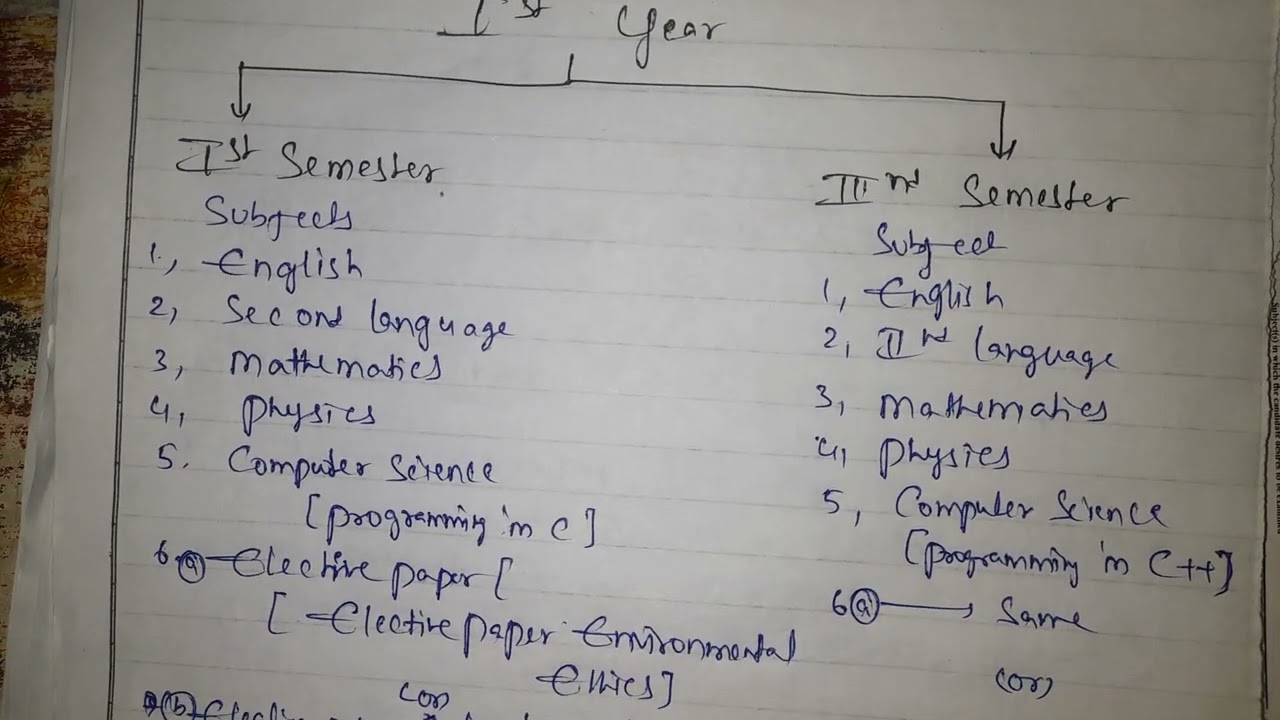 Ist Year
Ist Semester
Subjects
1., English
2, Second language
3, Mathematics
4, Physics
5. Computer Science
[programming in C]
6 (a) Elective paper [
[ Elective paper Environmental
Ethics]
(or)
(b) Elective
IInd Semester
Subject
1, English
2, IInd language
3, Mathematics
4, Physics
5, Computer Science
[programming in C++]
6 (a) → Same
(or)